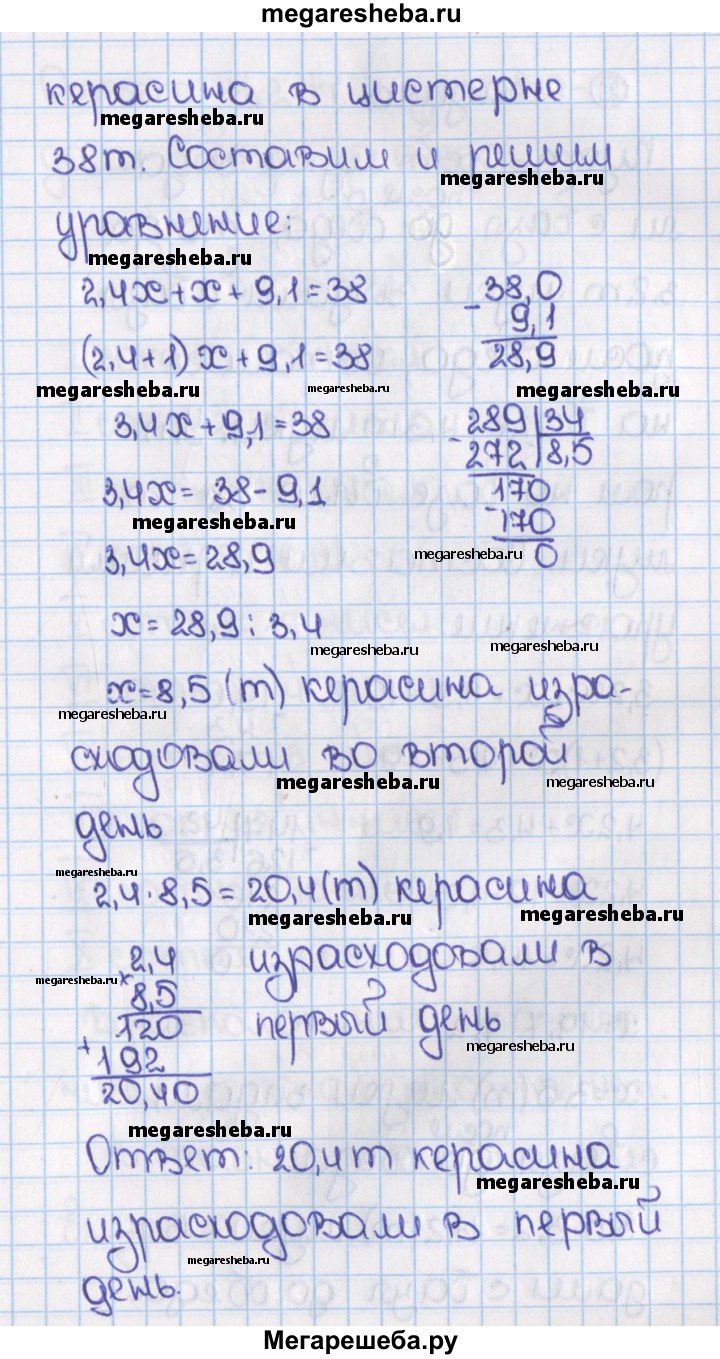 megaresheba.ru
керасина в цистерне
megaresheba.ru
38т. Составим и решим
megaresheba.ru
уравнение:
megaresheba.ru
2,4x+x+9,1=38
38,0
- 9,1
28,9
(2,4+1)x+9,1=38
megaresheba.ru
megaresheba.ru
megaresheba.ru
3,4x+9,1=38
289 34
- 272 8,5
170
- 170
0
3,4x= 38-9,1
megaresheba.ru
3,4x=28,9
megaresheba.ru
x= 28,9 : 3,4
megaresheba.ru
megaresheba.ru
x=8,5 (т) керасина изра-
megaresheba.ru
сходовали во второй
megaresheba.ru
megaresheba.ru
день
megaresheba.ru
2,4·8,5=20,4(т) керасина
megaresheba.ru
megaresheba.ru
израсходовали в
первый день
megaresheba.ru
2,4
megaresheba.ru
× 8,5
120
+ 192
20,40
megaresheba.ru
megaresheba.ru
Ответ: 20,4т керасина
megaresheba.ru
израсходовали в первый
megaresheba.ru
день.
Мегарешеба.ру